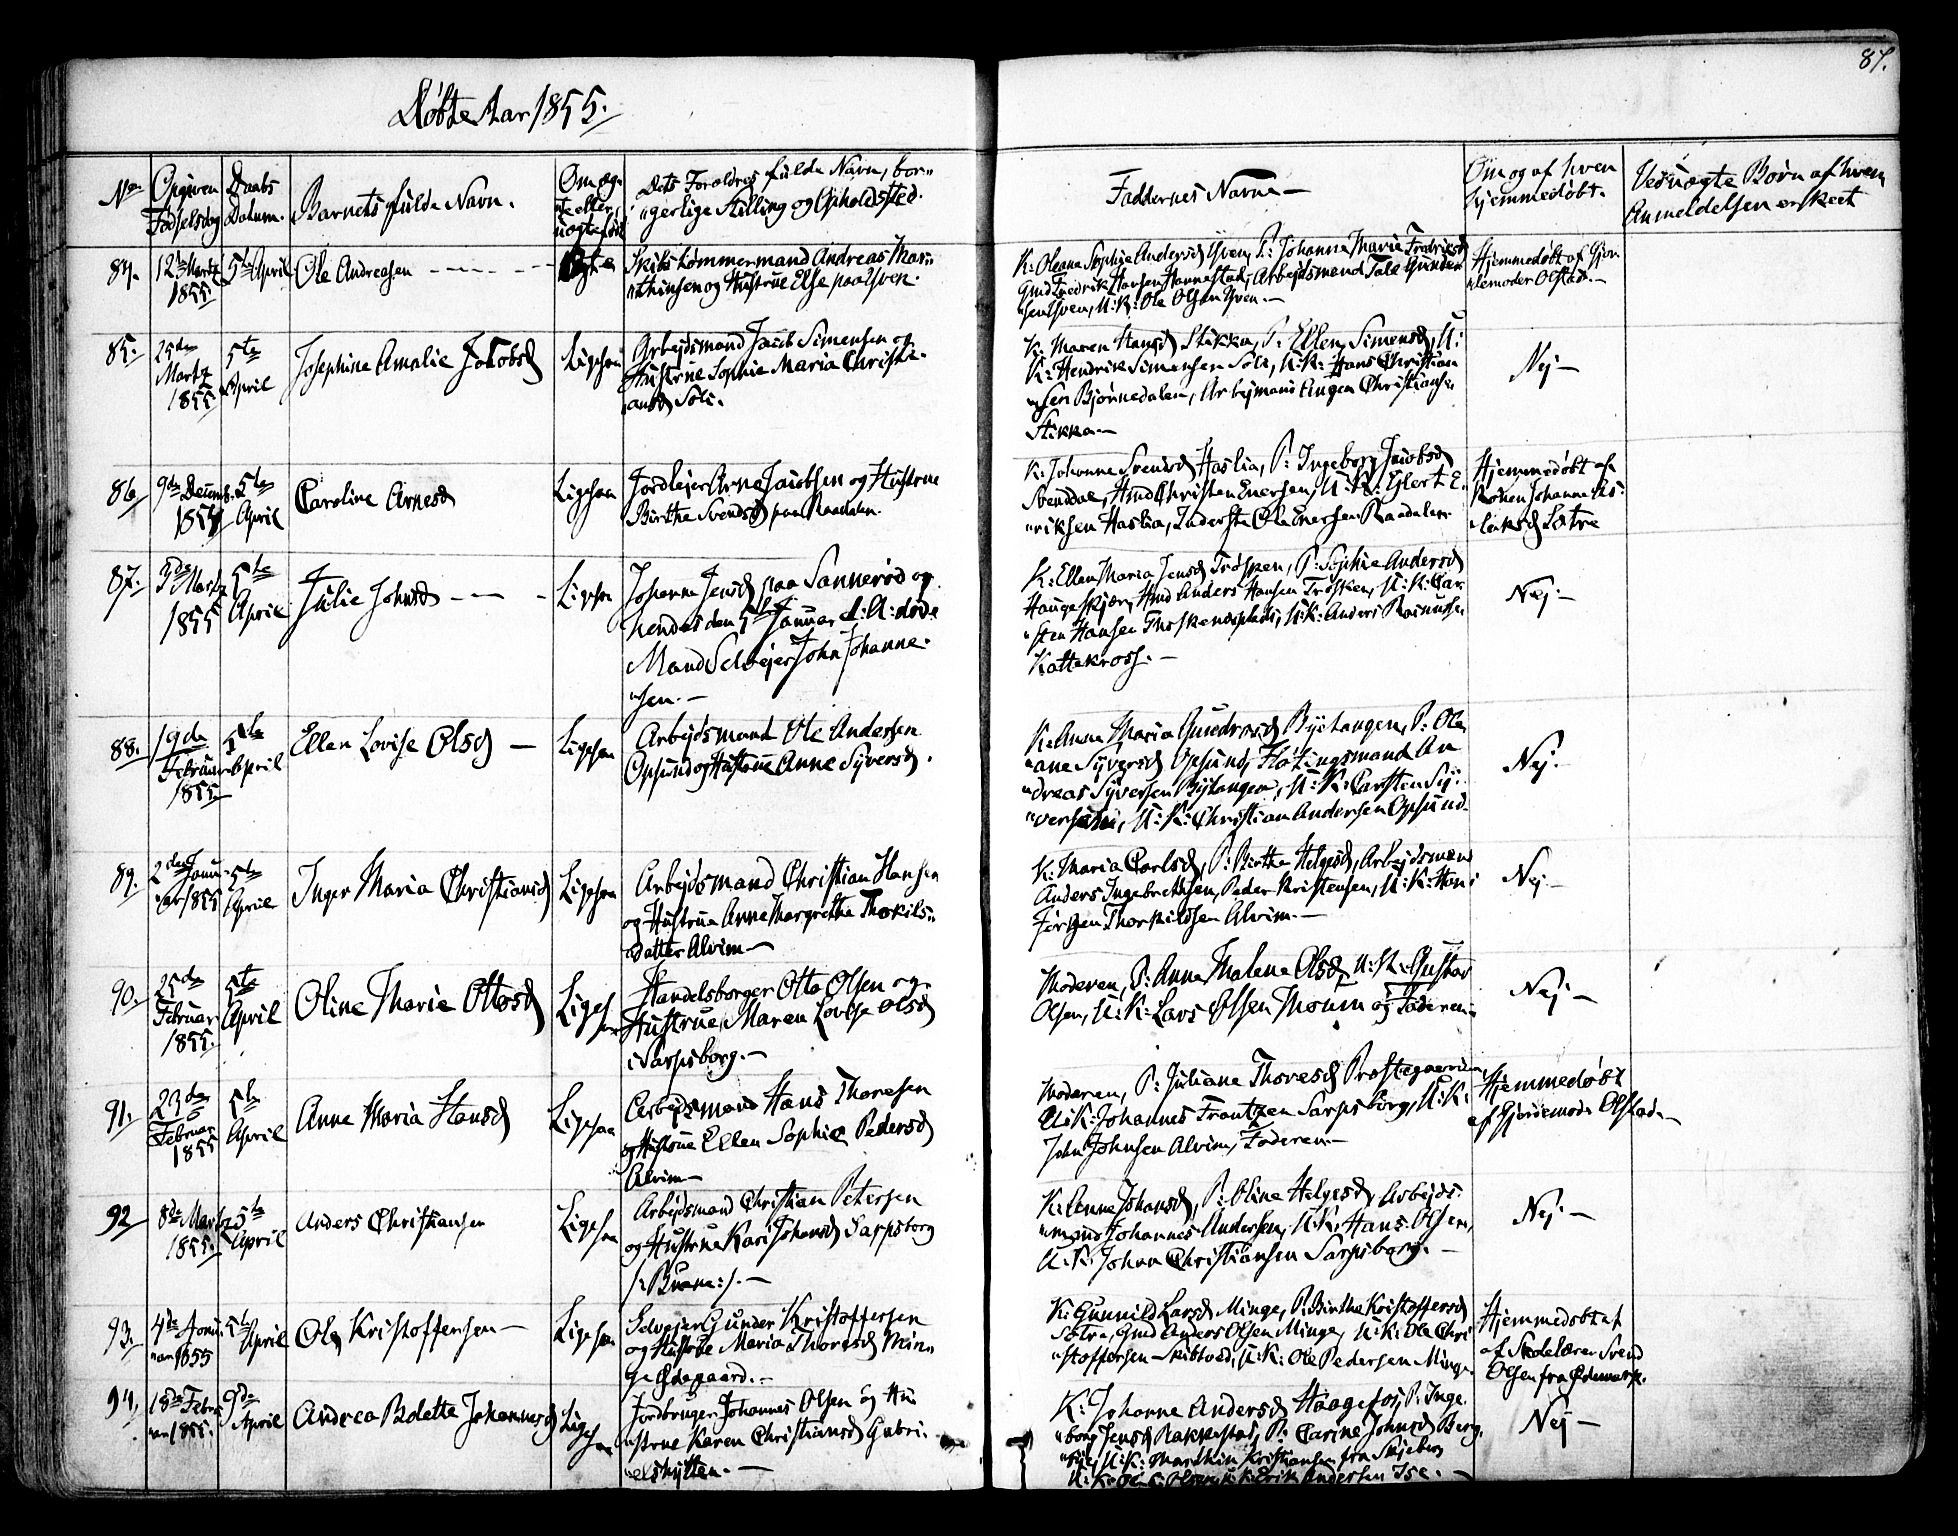 87.
Döbte Aar 1855.
No
Opgiven Fødselsdag
Daabs Datum.
Barnets fulde Navn.
Om ægte eller uægtefødt
Dets Forældres fulde Navn, bor-
gerlige Stilling og Opholdsted.
Faddernes Navne
Om og af hven
hjemmedøbt.
Ved uægte Børn af hvem
Anmeldelsen er skeet
84. 12te Martz 1855 5te April Ole Andreasen Ægte
Skibstømmermand Andreas Mar-
thinsen og Hustrue Else paa Yven
K: Oleane Sophie Andersd Yven, P: Johanne Marie Fredriksd
Gmd Fredrik Hansen Hannestad, Arbejdsmend Tale Gunder-
sen Yven, U:K: Ole Olsen Yven.
Hjemmedøbt af Gjor-
demoder Olstad.
85. 25de Martz 1855 5te April Josephine Amalie Jakobsd Ligesaa
Arbejdsmand Jacob Simensen og
Hustrue Sophie Maria Christi-
ansd Soli.
K: Maren Hansd Stikka, P: Ellen Simensd, U:
K: Hendrik Simensen Soli, U:K: Hans Christian-
sen Bjørnedalen, Arbejdsmand Christiansen
Stikka
Nej
86 9de Decemb. 1854 5te April Caroline Arnesd Ligesaa
Jordlejer Arne Jacobsen og Hustrue
Birthe Svendsd paa Raadalen
K: Johanne Svendsd Haslia, P: Ingeborg Jacobsd
Svenddal, Gmd Christen Enersen, U:K: Eglert E-
riksen Haslia, Inderste Ole Enersen Raadalen
Hjemmedøbt af
Konen Johanne
Sætre
87. 3de Martz 1855 5te April Julie Johnsd Ligesaa
Johanne Jensd paa Sannerød og
hendes den 5te Januar d:A: døde
Mand Selvejer John Johanne-
sen.
K: Ellen Maria Jensd Trøsken, P: Sophie Andersd
Haugeskjær, Gmd Anders Hansen Trøsken, U:K: Car-
sten Hansen Trøskensplads, U:K: Anders Rasmussen
Kattekross.
Nej.
88. 19de Februar 1855 5te April Ellen Lovise Olsd Ligesaa
Arbejdsmand Ole Andersen
Opsund og Hustrue Anne Syversd.
K: Anne Maria Gundrosd Bytangen, P: Ole-
ane Syversd Opsund, Fløtingsmand An-
dreas Syversen Bytangen, U:K: Carsten Sy-
versen, U:K: Christian Andersen Opsund
Nej.
89. 2den Januar 1855 5te April Inger Maria Christiansd Ligesaa
Arbejdsmand Christian Hansen
og Hustrue Anne Margrethe Thorkils-
datter Alvim
K: Maria Carlsd, P: Birthe Helgesd, Arbejdsmænd
Anders Ingebrethsen, Peder Kristensen, U:K: Hans
Jørgen Thorkildsen Alvim.
Nej
90. 25de Februar 1855. 5te April Oline Marie Ottosd Ligesaa
Handelsborger Otto Olsen og
Hustrue Maren Lovise Olsd
i Sarpsborg.
Moderen, P: Anne Malene Olsd, U:K: Gustav
Olsen, U:K: Lars Olsen Moum og Faderen.
Nej
91. 23de Februar 1855 5te April Anne Maria Hansd Ligesaa
Arbejdsmand Hans Thoresen
og Hustrue Ellen Sophie Pedersd
Alvim
Moderen, P: Juliane Thoresd Præstegaarden,
U:K: Johannes Frantzen Sarpsborg, U:K:
John Johnsen Alvim, Faderen
Hjemmedøbt
af Gjordemoder Olstad
92 8de Martz 1855. 5te April Anders Christiansen Ligesaa
Arbejdsmand Christian Petersen
og Hustrue Kari Johansd Sarpsborg
/: Brane:/.
K: Anne Johansd, P: Oline Helgesd, Arbejds-
mand Johannes Andersen, U:K: Hans Olsen,
U:K: Johan Christiansen Sarpsborg.
Nej.
93. 4de Januar 1855 5te April Ole Kristoffersen Ligesaa
Selvejer Gunder Kristoffersen
og Hustrue Maria Thoresd Min-
ge Ødegaard.
K: Gunnild Larsd Minge, P: Birthe Kristoffersd
Sætre, Gmd Anders Olsen Minge, U:K: Ole Chri-
stoffersen Skibtvedt, U:K: Ole Pedersen Minge
Hjemmedøbt
af Skolelærer Svend
Olsen fra
94. 18de Februar 1855. 9de April Andrea Bolette Johannesd Ligesaa
Jordbruger Johannes Olsen og Hu-
strue Karen Christiansd Gabri-
elshytten.
K: Johanne Andersd Haagefos, P: Inge-
borg Jensd Rakkestad, P: Carine Johnsd Berg-
U:K: Marthin Kristiansen fra Skjeberg
U:K: Olsen, U:K: Erik Andersen Ise.
Nej